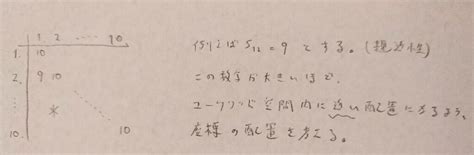 1 2 …… 10
1. 10
2. 9 10
⋮
*
10. 10
例えば S₁₂ = 9 とする。(親近性)
この数字が大きいほど、
ユークリッド空間内に近い配置になるよう、
座標の配置を考える。